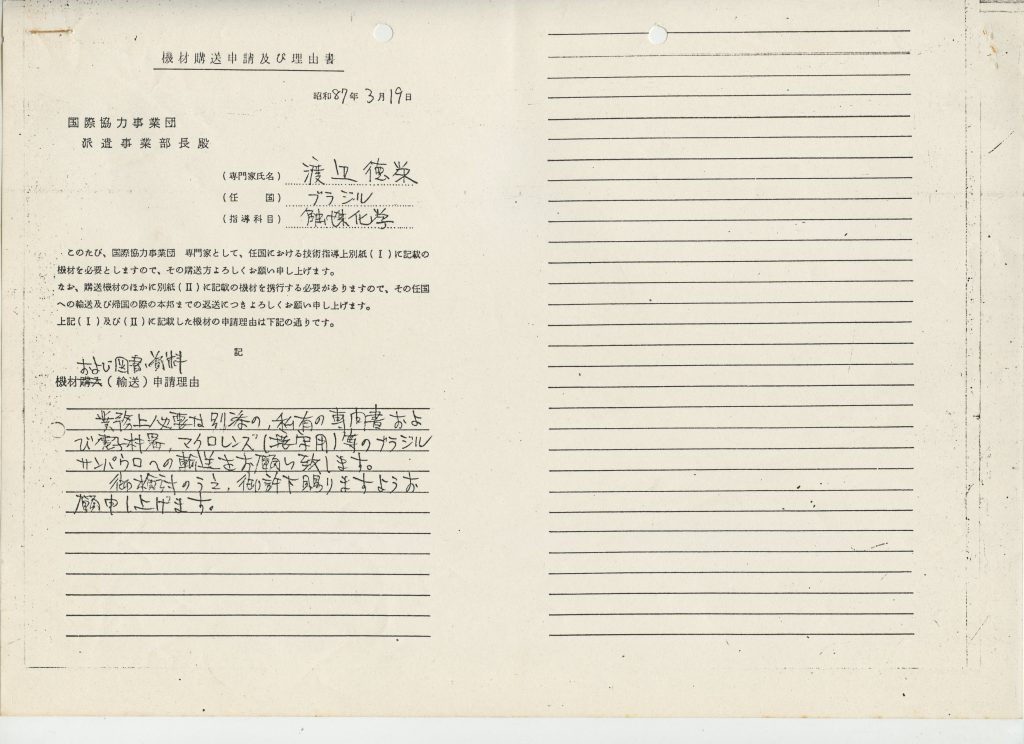 機材購送申請及び理由書
昭和87年3月19日
国際協力事業団
派遣事業部長殿
(専門家氏名) 渡辺徳栄
(任 国) ブラジル
(指導科目) 触媒化学
このたび、国際協力事業団 専門家として、任国における技術指導上別紙(Ⅰ)に記載の
機材を必要としますので、その購送方よろしくお願い申し上げます。
なお、購送機材のほかに別紙(Ⅱ)に記載の機材を携行する必要がありますので、その任国
への輸送及び帰国の際の本邦までの返送につきよろしくお願い申し上げます。
上記(Ⅰ)及び(Ⅱ)に記載した機材の申請理由は下記の通りです。
記
および図書・資料
機材購入(輸送)申請理由
業務上必要な別添の、私有の専門書およ
び電子機器、マクロレンズ(接写用)等のブラジル
サンパウロへの輸送をお願い致します。
御検討のうえ、御許下賜りますようお
願申し上げます。